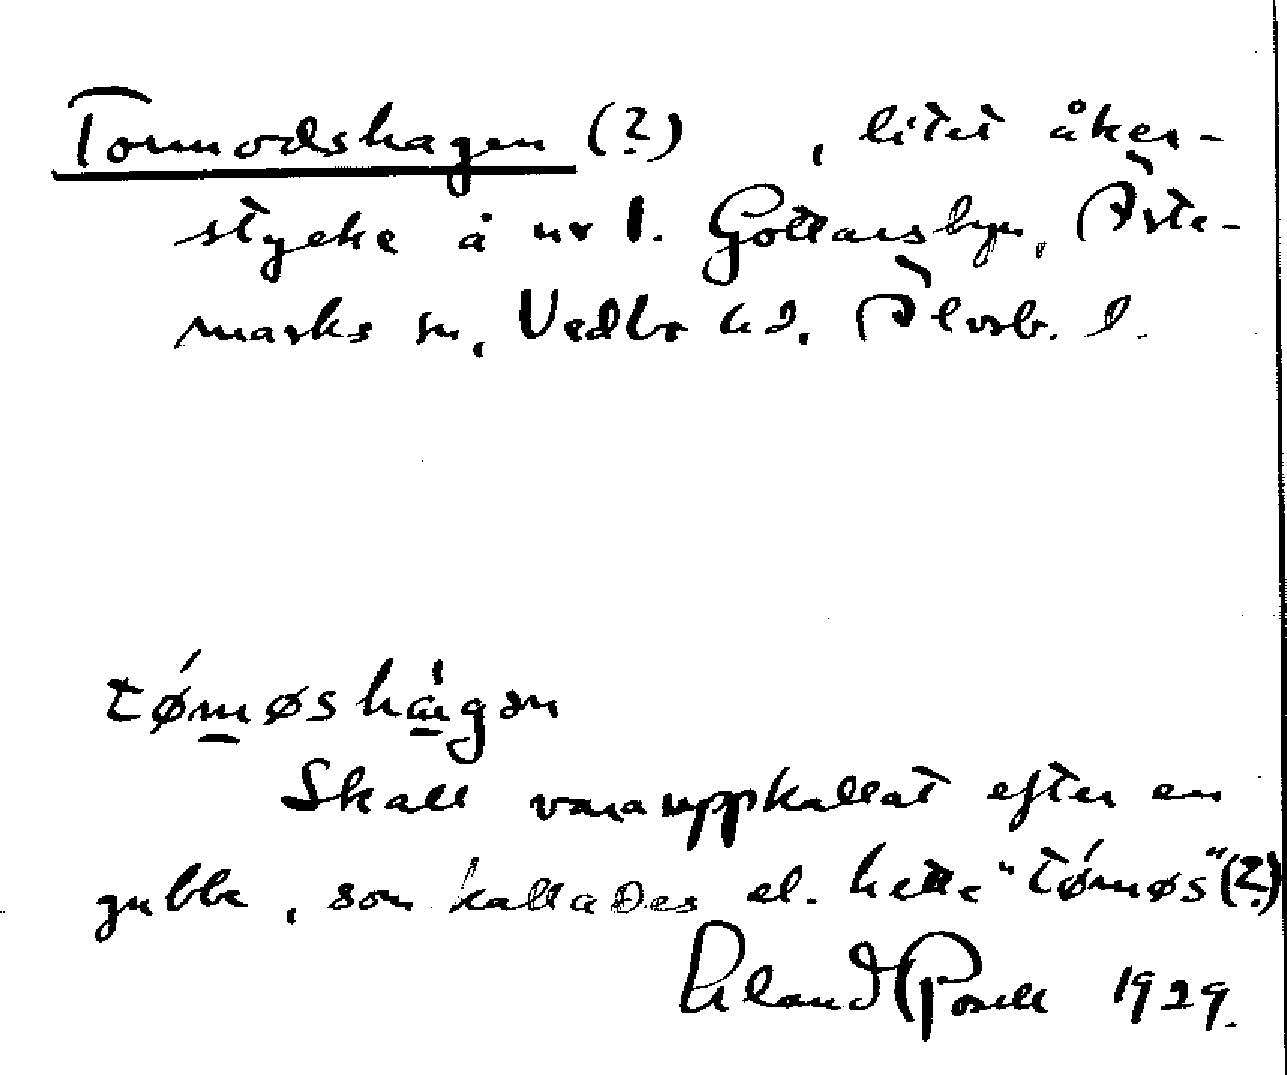 Tormodshagen (?) , litet åker-
stycke å nr 1. Gottarsbyn, Årte-
marks sn, Vedbo hd, Älvsb. l.
tǿmøshágən
Skall vara uppkallat efter en
gubbe, som kallades el. hette "tǿmøs" (?)
Erland Rosell 1929.